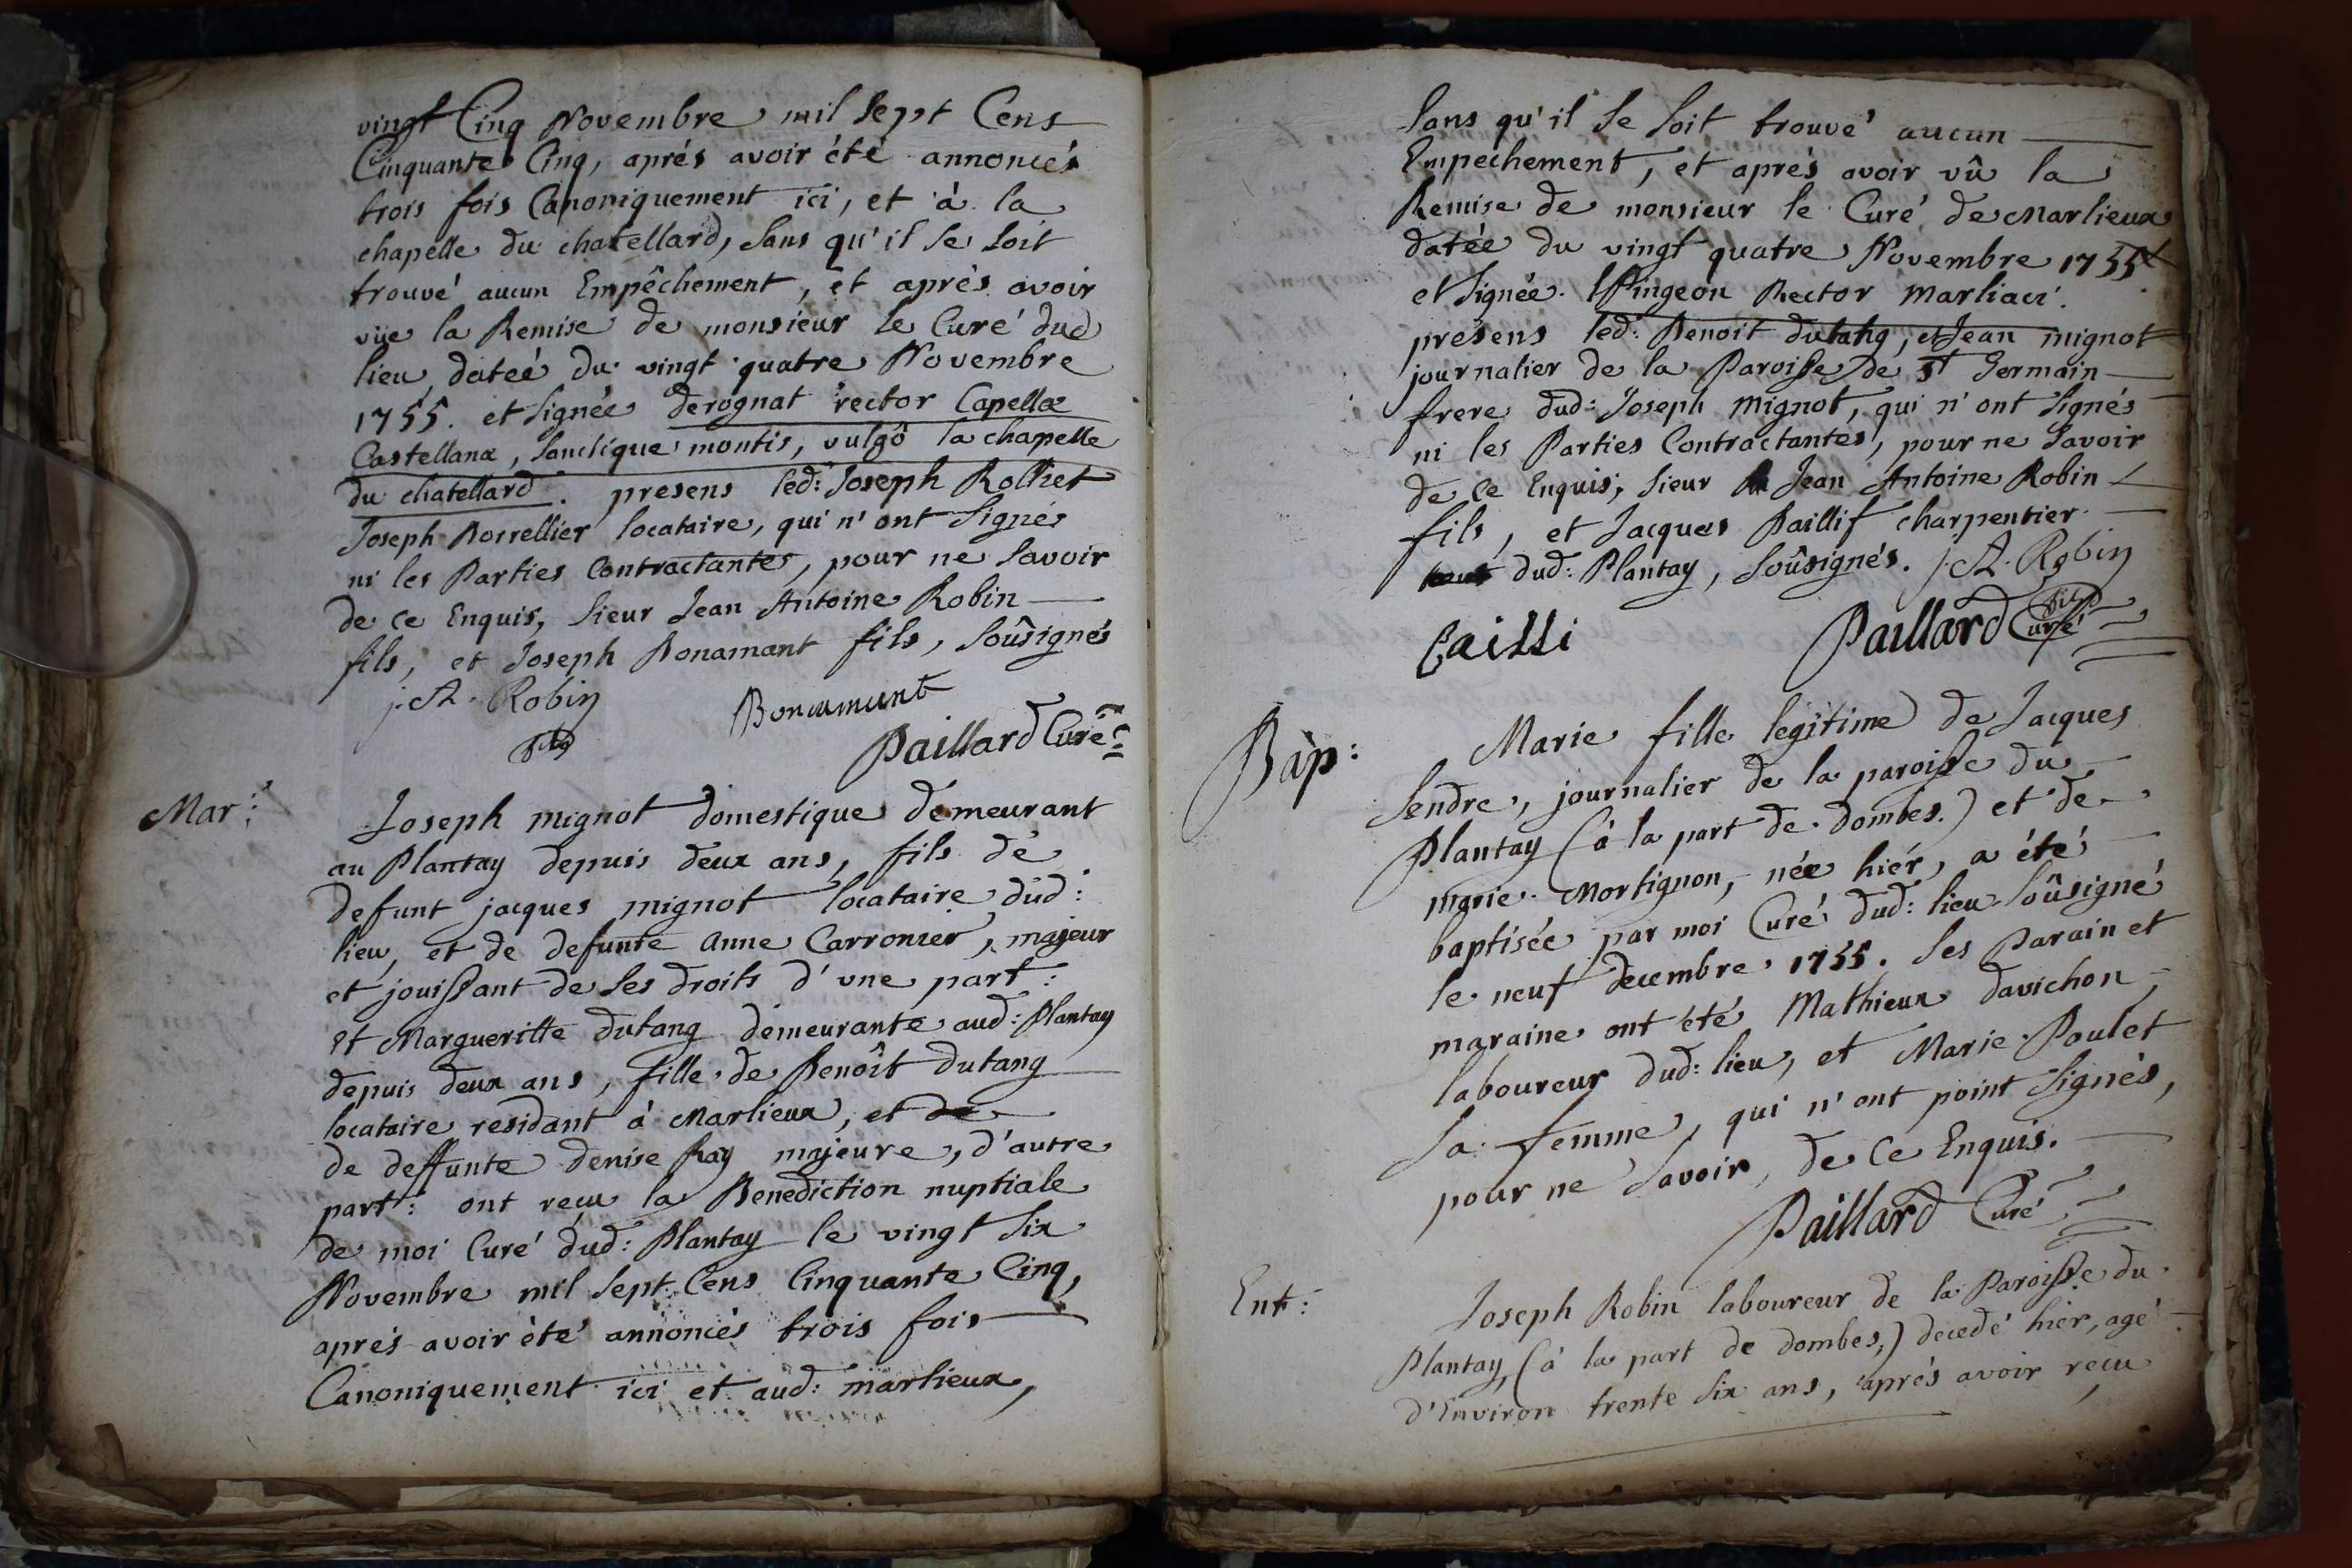 vingt Cinq Novembre mil sept Cens
Cinquante Cinq, aprés avoir été annoncés
trois fois Canoniquement ici, et à la
chapelle du chatellard, sans qu'il se soit
trouvé aucun Empêchement, et aprés avoir
vüe la Remise de monsieur le Curé dud
lieu, datée du vingt quatre Novembre
1755. et signée derognat rector Capellæ
Castellanæ, sanctique montis, vulgô la chapelle
du chatellard. presens led: Joseph Rolliet
Joseph Borrellier locataire, qui n'ont signés
ni les Parties Contractantes, pour ne savoir
de ce Enquis, sieur Jean Antoine Robin
fils, et Joseph Bonamant fils, soûsignés
j. A. Robin Bonamant
fils Paillard Curé
Mar: Joseph mignot domestique demeurant
au Plantay depuis deux ans, fils de
defunt jacques mignot locataire dud:
lieu, et de defunte Anne Carronier, majeur
et jouissant de ses droits d'une part:
et Margueritte dutang demeurante aud: Plantay
depuis deux ans, fille de Benoît dutang
locataire residant à Marlieux, et de
de deffunte denise Ray majeure, d'autre
part: ont reçu la Benediction nuptiale
de moi Curé dud: Plantay le vingt six
Novembre mil sept Cens Cinquante Cinq,
aprés avoir été annoncés trois fois
Canoniquement ici et aud: marlieux,
sans qu'il se soit trouvé aucun
Empechement, et aprés avoir vû la
Remise de monsieur le Curé de Marlieux
datée du vingt quatre Novembre 1755
et signée. Pingeon Rector Marliaci.
presens led: Benoit dutang, et Jean mignot
journalier de la Paroisse de St Germain
frere dud: Joseph mignot, qui n'ont signés
ni les Parties Contractantes, pour ne savoir
de ce Enquis, sieur Jean Antoine Robin
fils, et Jacques Baillif charpentier
dud: Plantay, soûsignés. j. A. Robin
fils
Bailli Paillard Curé
Bap: Marie fille legitime de Jacques
Sendre, journalier de la paroisse du
Plantay (à la part de dombes.) et de
marie Mortignon, née hiér, a été
baptisée par moi Curé dud: lieu soûsigné
le neuf decembre 1755. Ses Parain et
maraine ont été Mathieux davichon,
laboureur dud: lieu, et Marie Poulet
sa femme, qui n'ont point signés,
pour ne savoir, de ce Enquis.
Paillard Curé
Ent: Joseph Robin laboureur de la Paroisse du
Plantay, (à la part de dombes,) decedé hier, agé
d'Environ trente six ans, aprés avoir reçu